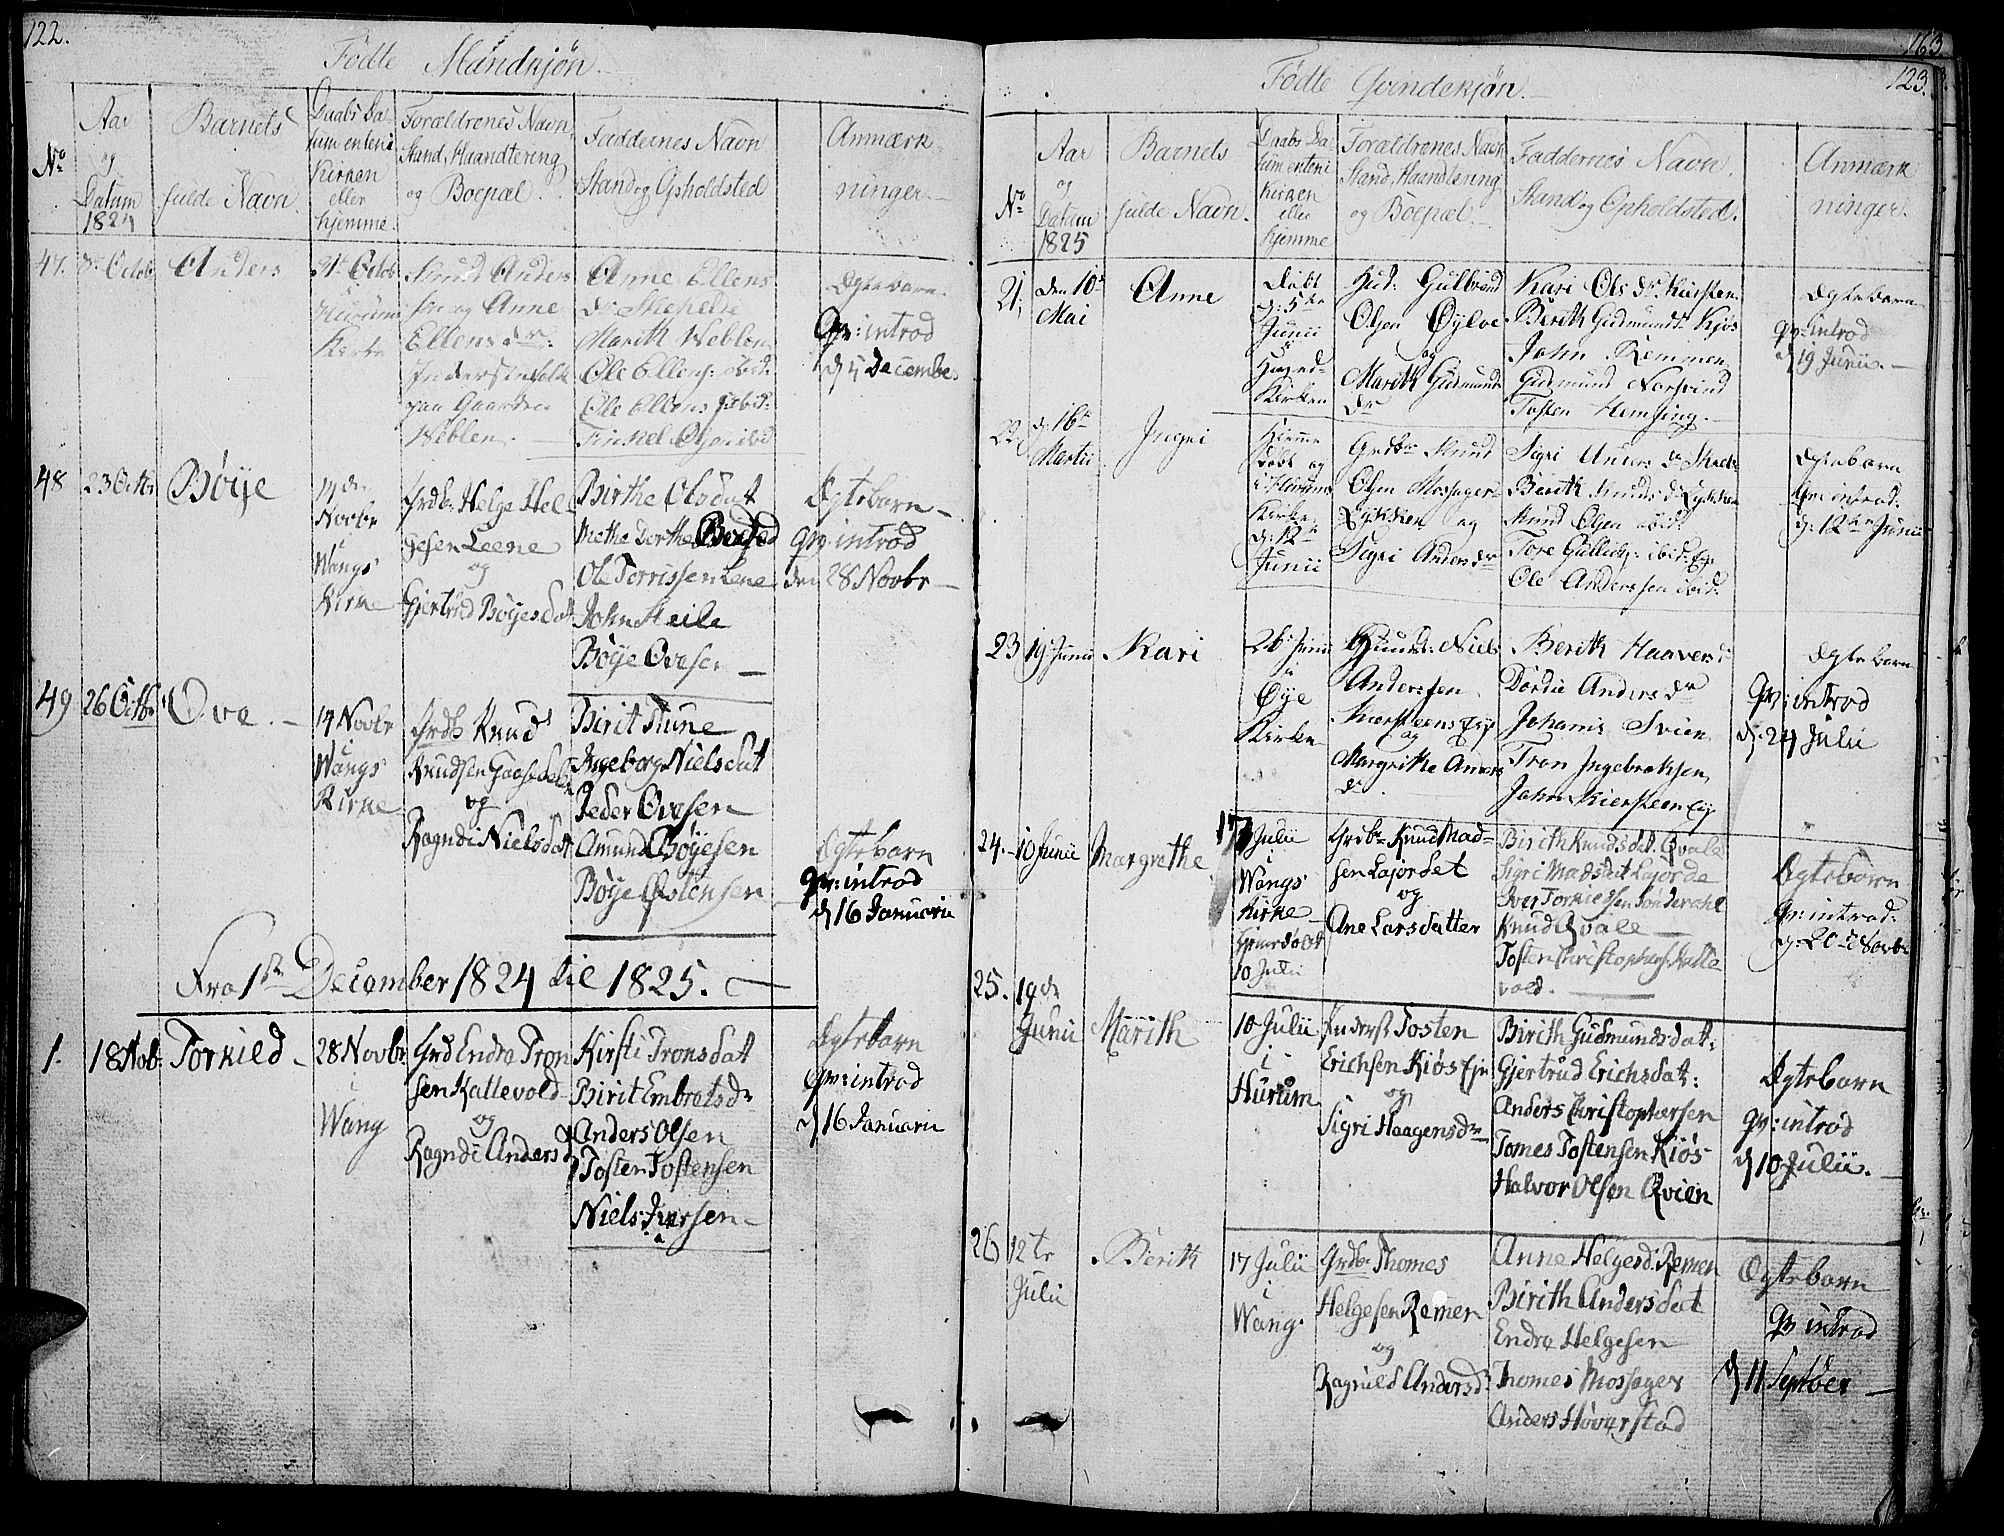 122.
Fødte Mandkjøn.
No
Aar og Datum 1824
Barnets fulde Navn.
Daabs Datum enten i Kirken eller hjemme.
Forældrenes Navn, Stand, Haandtering og Boepæl.
Faddernes Navn Stand og Opholdsted
Anmærkninger.
47.
Octob
Anders
Octob
Hurum
Kirke
Knud Anders
sen og Anne
Ellens dr:
paa Gaarden
Weblen.
Anne Ellens
dr
Marith Weblen
Ole Ellens: ibid:
Ole Ellens ibid:
Ægtebarn.
qv: introd
d 5 December
48
23 Octbr
Bøye
14 de
Novbr
i
Wangs
Kirke
Grdb: Helge Hel-
gesen Leene
og
Gjertrud Bøyesdat
Birthe Olsdat
Methe Dorthe
Ole Torrissen Lene
John Steile
Bøye Ovesen
Ægtebarn
qv: introd
den 28 Novbr
49
26 Octbr
Ove.
14 Novbr
Wangs
Kirke
Grdb Knud
Knudsen
og
Ragndi Nielsdat
Birit Tune
Ingeborg Nielsdat
Peder Ovesen
Amund Bøyesen
Bøye Østensen
Ægtebarn
qv: introd
d 16 Januarii
Fra 1ste December 1824 til 1825.
1.
18 Nob:
Torkild
28 Novbr
i
Wang
Grd Endre Tron
sen Kattevold
og
Ragndi Andersd
Kirsti Tronsdat
Birit Embrotsdr
Anders Olsen
Tosten Tostensen
Niels Iversen
Ægtebarn
qv: introd
d 16 Januarii
163
123.
Fødte Qvindekjøn.
No
Aar og Datum 1825
Barnets fulde Navn.
Daabs Datum enten i Kirken eller hjemme
Forældrenes Navn Stand, Haandtering og Boepæl.
Faddernes Navn, Stand og Opholdsted.
Anmærkninger.
21,
den 10de
Mai
Anne
Døbt
d: 5te
Junii
i
Kirken
Gulbrand
Olsen Øylve
og
Marith Gudmunds
dr
Kari Ols dr Kirsten
Berith Gudmundsdr Kjøs
John Remmen
Gudmund Norsvind
Tosten Hemsing
Ægtebarn
qv: introd
d 19 Junii.
22,
d: 16de
Martii
Ingri
Hjemme
døbt og
i Hurums
Kirke
d: 12te
Junii
Grdbr Knud
Olsen
Lykken og
Sigri Anders dr
Sigri Anders dr
Berith Knuds dr Lykken
Knud Olsen ibid:
Ole Anderssen ibid:
Ægtebarn
qv: introd:
d: 12te Junii
23
19 Junii
Kari
26 Junii
i
Øye
Kirken
Niels
Anderssen
Kiersteens Eje
og
Margrithe Anders
dr
Berith Haaversd
Dordie Anders dr
Johanis Svien
Tron Ingebrektsen
John Kiersteen Eje
Ægtebarn
qv: introd
d: 24 Julii
24.
10 Junii
Margrethe
17 Julii
i
Wangs
Kirke
10 Julii
Grdbr Knud Mad-
sen Lajordet
og
Ane Larsdatter
Birith Knudsdat. Qvale
Sigri Madsdat Lajorde
Iver Torkieldsen Sønderahl
Knud Qvale
Tosten Christophers. Katte
vold.
Ægtebarn
qv: introd:
d: 20de Novbr
25.
19 de
Junii
Marith
10 Julii
i
Hurum
Tosten
Erichsen Kiøs Eje
og
Sigri Haagensdr
Birith Gudmundsdat:
Gjertrud Erichsdat:
Anders Christophersen
Tomes Tostensen Kiøs
Halvor Olsen Qvien
Ægtebarn
qv: introd
d 10 Julii.
26
12 te
Julii
Berith
17 Julii
i
Wang.
Grdb: Thomes
Helgesen Remen
og
Ragnild Andersd
Anne Helgesd: Remen
Birith Andersdat
Endre Helgesen
Thomes Mossager
Anders Høverstad
Ægtebarn
qv introd
d 11 Septber